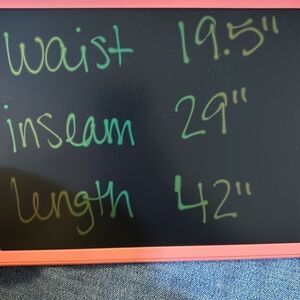 waist 19.5"
inseam 29"
length 42"